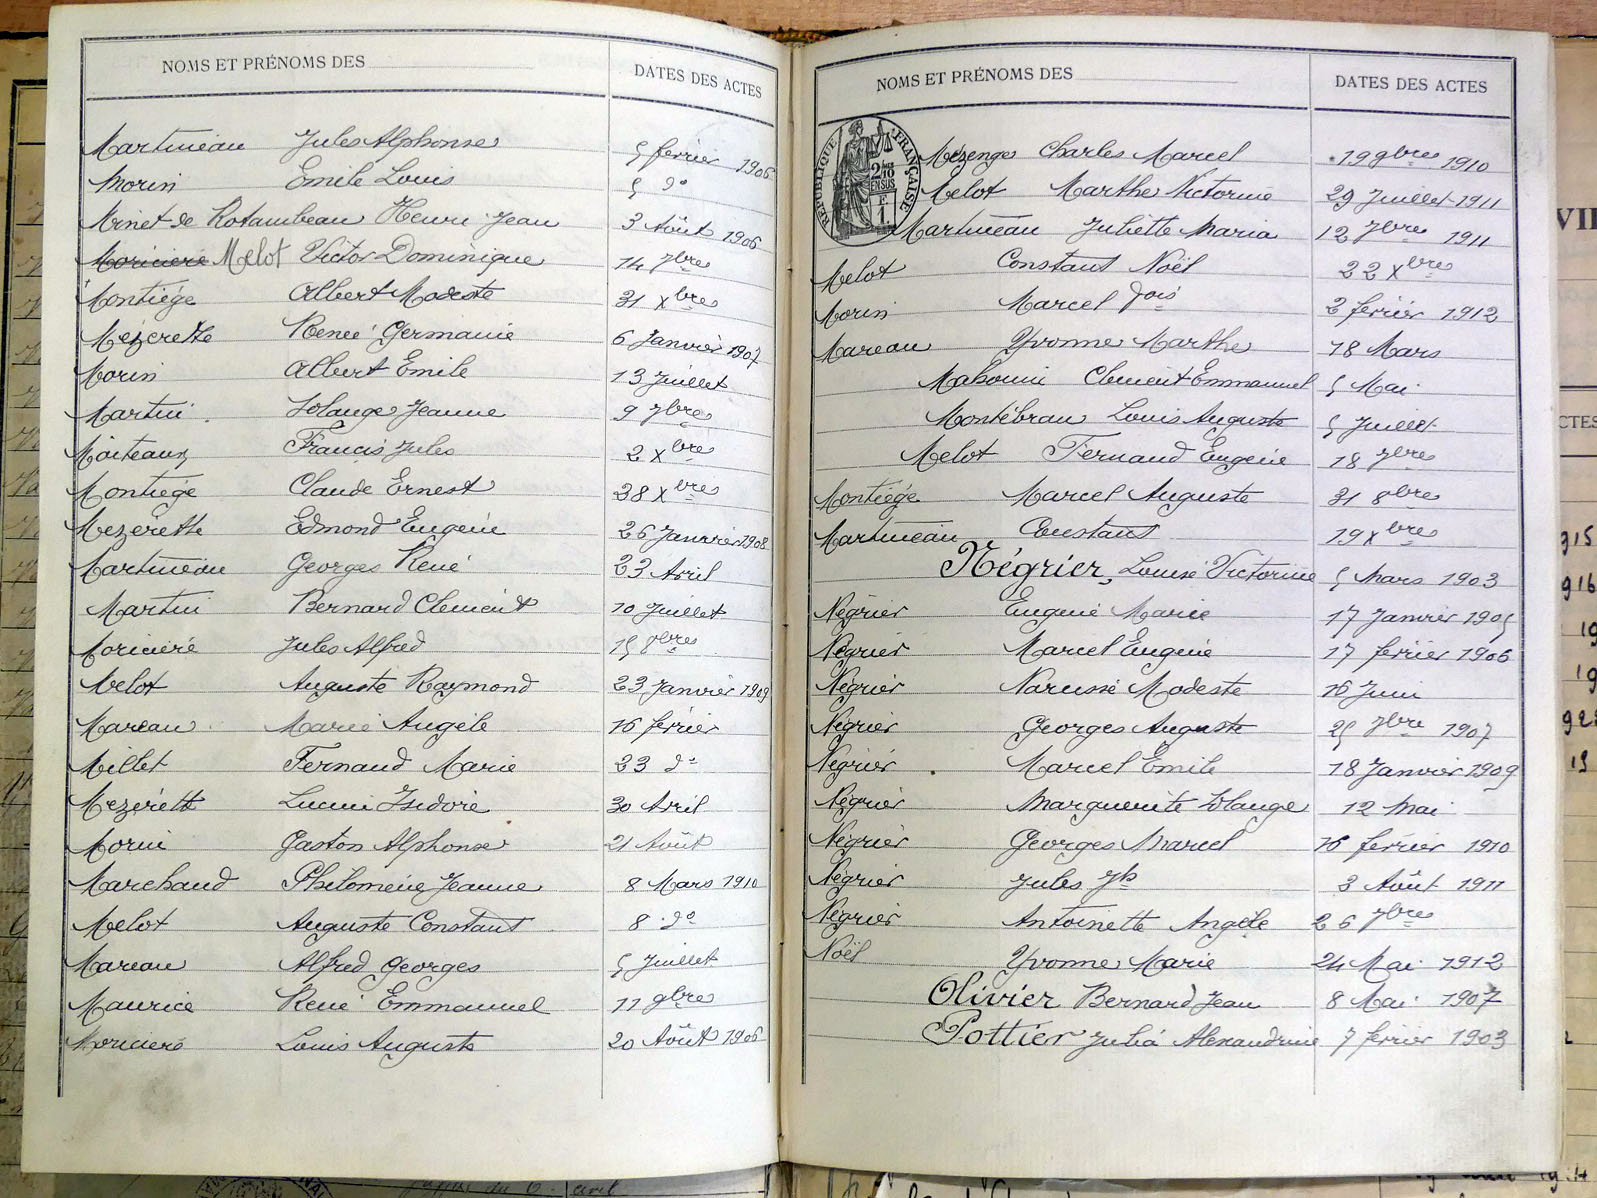 NOMS ET PRÉNOMS DES
DATES DES ACTES
Martineau Jules Alphonse 5 février 1906
Morin Emile Louis 5 do
Minet de Rotambeau Henri Jean 3 Août 1906
Moricière Melot Victor Dominique 14 7bres
Montiége Albert Modeste 31 Xbres
Mezerette Renée Germanie 6 Janvier 1907
Morin Albert Emile 13 Juillet
Martin Solange Jeanne 9 7bres
Francis Jules 2 Xbres
Montiége Claude Ernest 28 Xbres
Mezerette Edmond Eugène 26 Janvier 1908
Martineau Georges René 23 Avril
Martin Bernard Clement 10 Juillet
Moricieré Jules Alfred 15 8bres
Melot Auguste Raymond 23 Janvier 1909
Mareau Marie Angèle 16 février
Millet Fernand Marie 23 do
Mezerette Lucien Isidore 30 Avril
Morin Gaston Alphonse 21 Août
Marchaud Philomène Jeanne 8 Mars 1910
Melot Auguste Constant 8 do
Mareau Alfred Georges 5 Juillet
Maurice René Emmanuel 11 9bres
Moriciere Louis Auguste 20 Août 1906
NOMS ET PRÉNOMS DES
DATES DES ACTES
RÉPUBLIQUE FRANÇAISE
2/10 EN SUS
F. 1
Mézenge Charles Marcel 19 9bres 1910
Melot Marthe Victorine 29 Juillet 1911
Martineau Juliette Maria 12 7bres 1911
Melot Constant Noël 22 Xbres
Morin Marcel 2 février 1912
Mareau Yvonne Marthe 18 Mars
Clement Emmanuel 5 Mai
Montébrau Louis Auguste 5 Juillet
Melot Fernand Eugène 18 7bres
Montiége Marcel Auguste 31 8bres
Martineau Constant 19 Xbres
Négrier, Louise Victorine 5 Mars 1903
Négrier Eugène Marie 17 Janvier 1905
Négrier Marcel Eugène 17 février 1906
Négrier Narcisse Modeste 16 Juin
Négrier Georges Auguste 25 7bre 1907
Négrier Marcel Emile 18 Janvier 1909
Négrier Marguerite Solange 12 Mai
Négrier Georges Marcel 16 février 1910
Négrier Jules Jh 3 Août 1911
Négrier Antoinette Angèle 26 7bres
Noël Yvonne Marie 24 Mai 1912
Olivier Bernard Jean 8 Mai 1907
Pottier Julia Alexandrine 7 février 1903